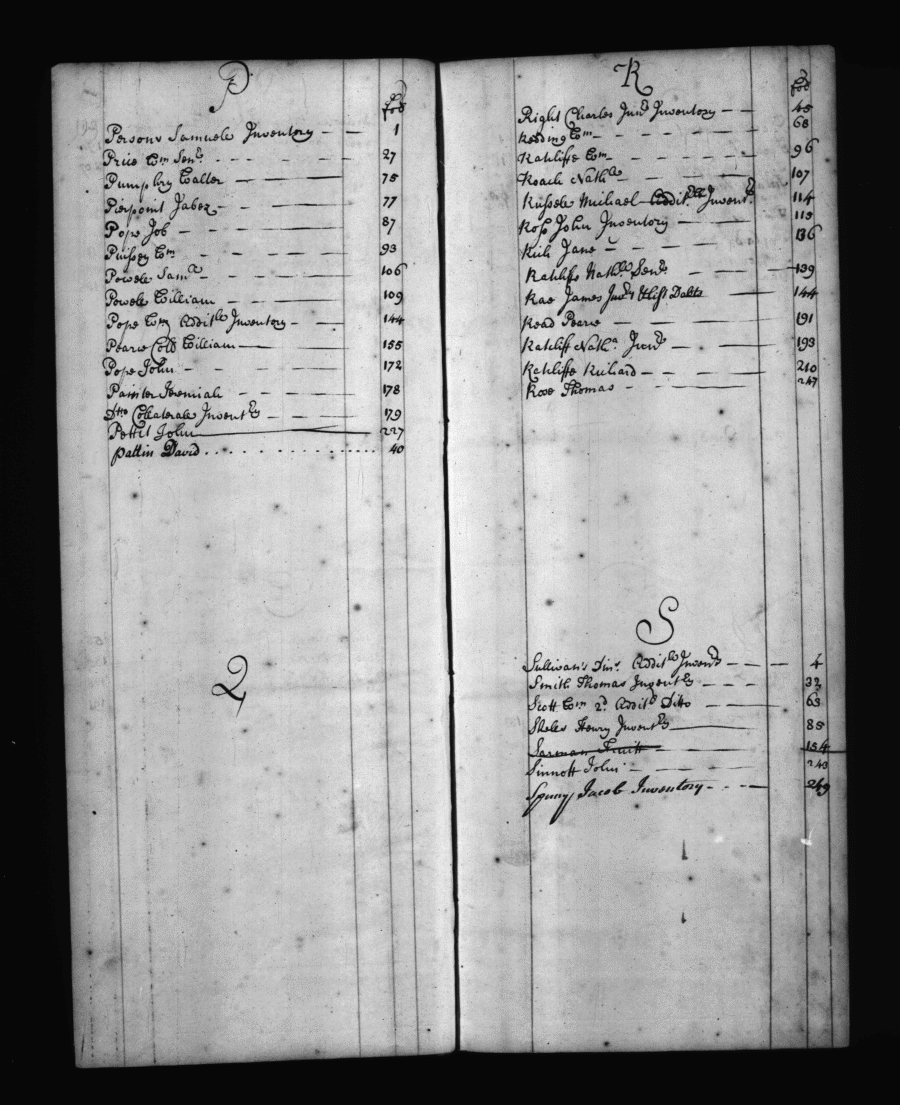 P
fol
Persons Samuele Inventory 1
Price Wm Senr 27
Pumphry Walter 75
Pierpoint Jabez 77
Pope Job 87
Puissey Wm 93
Powele Saml 106
Powele William 109
Pope Wm Additle Inventory 144
Pearce Coll William 155
Pope John 172
Painter Jeremiah 178
Ditto Collaterale Inventry 179
Pettit John 227
Pattin David 40
Q
R
fol
Right Charles Junr Inventory 45
Reding Wm 68
Ratcliffe Wm 96
Roach Nathle 107
Russele Michael Additle Invent 114
Ross John Inventory 115
Jane 136
Ratcliffe Nathle Senr 139
Rae James Invry & List Debts 144
Read Pearce 191
Ratcliff Natha Junr 193
Ratcliffe Richard 210
Roe Thomas 247
S
fol
Sullivan's Additle Inventry 4
Smith Thomas Inventry 32
Scott Wm 2d Additle Ditto 63
Henry Inventry 85
Sarman 154
Sinnott John 243
Jacob Inventory 249